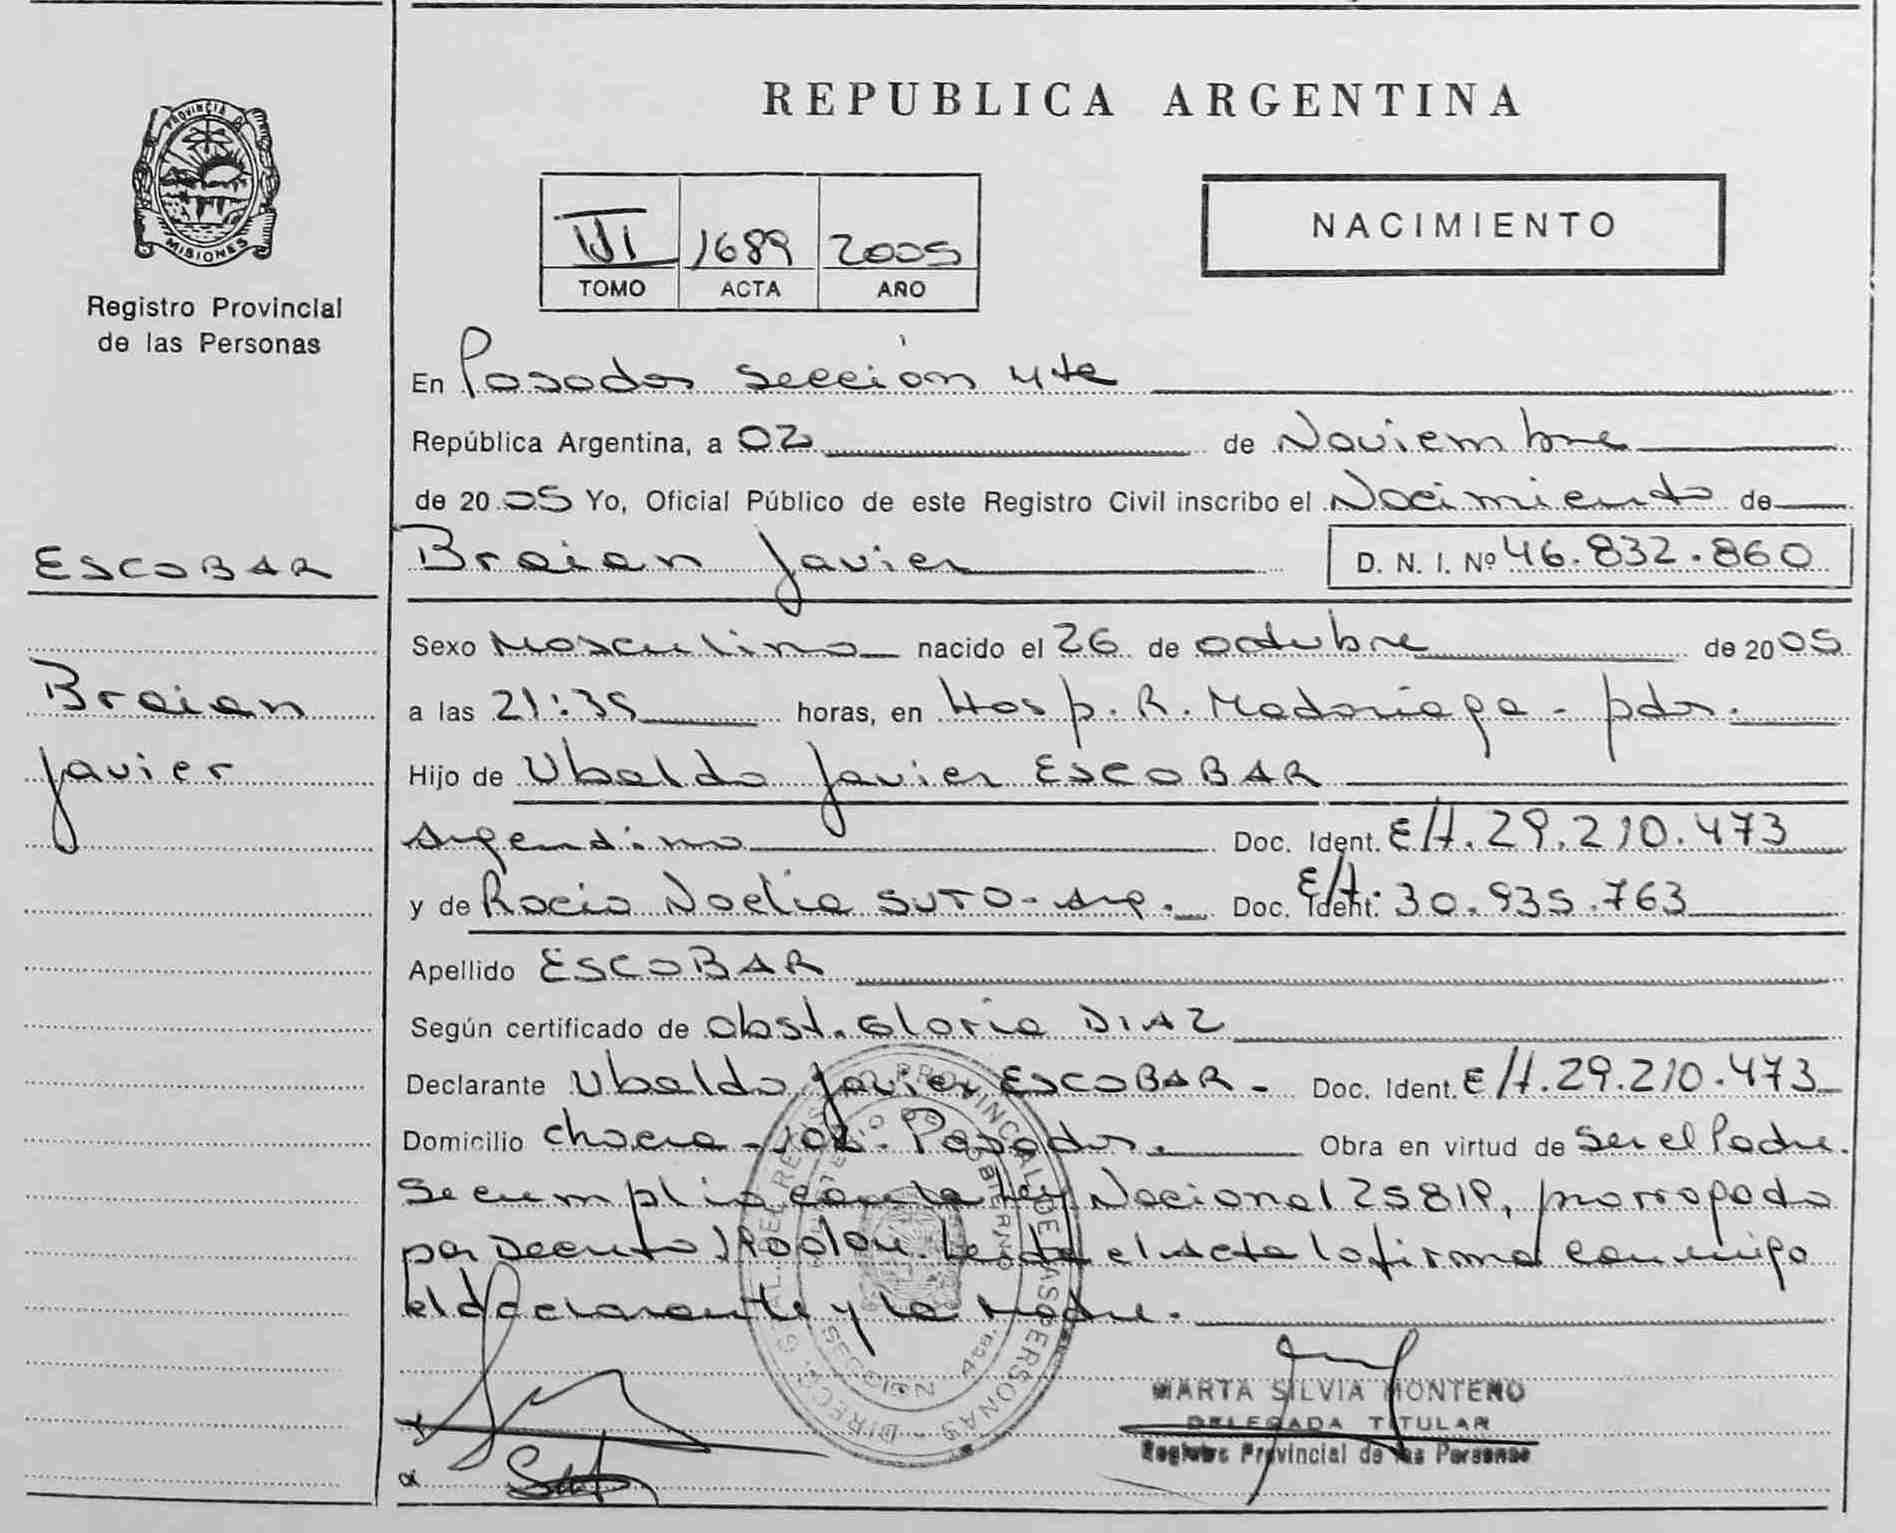 REPUBLICA ARGENTINA
PROVINCIA DE MISIONES
Registro Provincial
de las Personas
III 1689 2005
TOMO ACTA AÑO
NACIMIENTO
En Posadas Sección 4ta
República Argentina, a 02 de Noviembre
de 2005 Yo, Oficial Público de este Registro Civil inscribo el Nacimiento de
ESCOBAR
Braian Javier D. N. I. Nº 46.832.860
Sexo Masculino nacido el 26 de octubre de 2005
Braian
a las 21:35 horas, en Hosp. R. Madariaga - pdas.
Javier
Hijo de Ubaldo Javier ESCOBAR
Argentino Doc. Ident. E/A. 29.210.473
y de Rocio Noelia SUTO - Arg. Doc. Ident. E/A. 30.935.763
Apellido ESCOBAR
Según certificado de obst. Gloria DIAZ
Declarante Ubaldo Javier ESCOBAR - Doc. Ident. E/A. 29.210.473
Domicilio chacra - 102 - Posadas. Obra en virtud de Ser el Padre.
Se cumplió con la Ley Nacional 25819, prorrogada
por Decreto Leida el Acta la firma conmigo
el declarante y la Madre.
DIRECCION GRAL. DEL REGISTRO PROVINCIAL DE LAS PERSONAS
MINISTERIO DE GOBIERNO
SECCION 4ta.
MARTA SILVIA MONTERO
DELEGADA TITULAR
Registro Provincial de las Personas